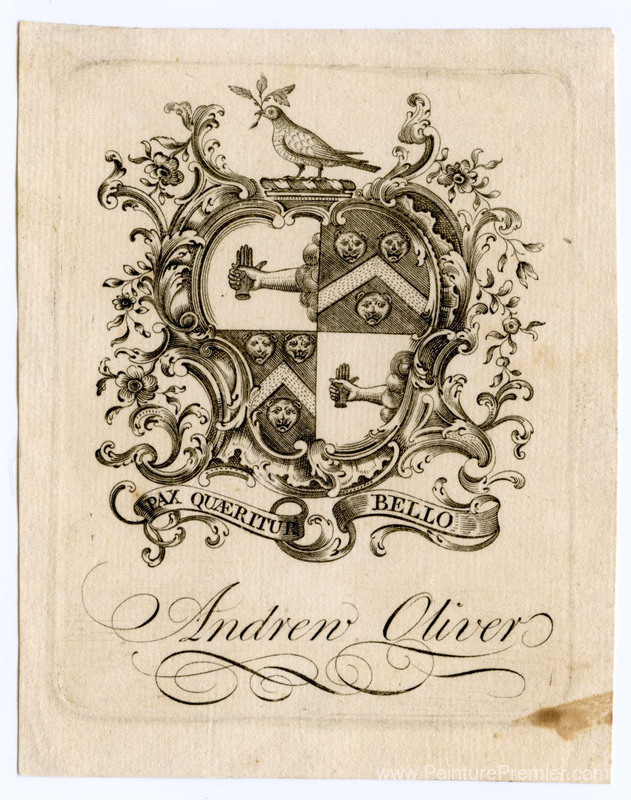 PAX QUÆRITUR BELLO
Andrew Oliver
www.PeinturePremier.com